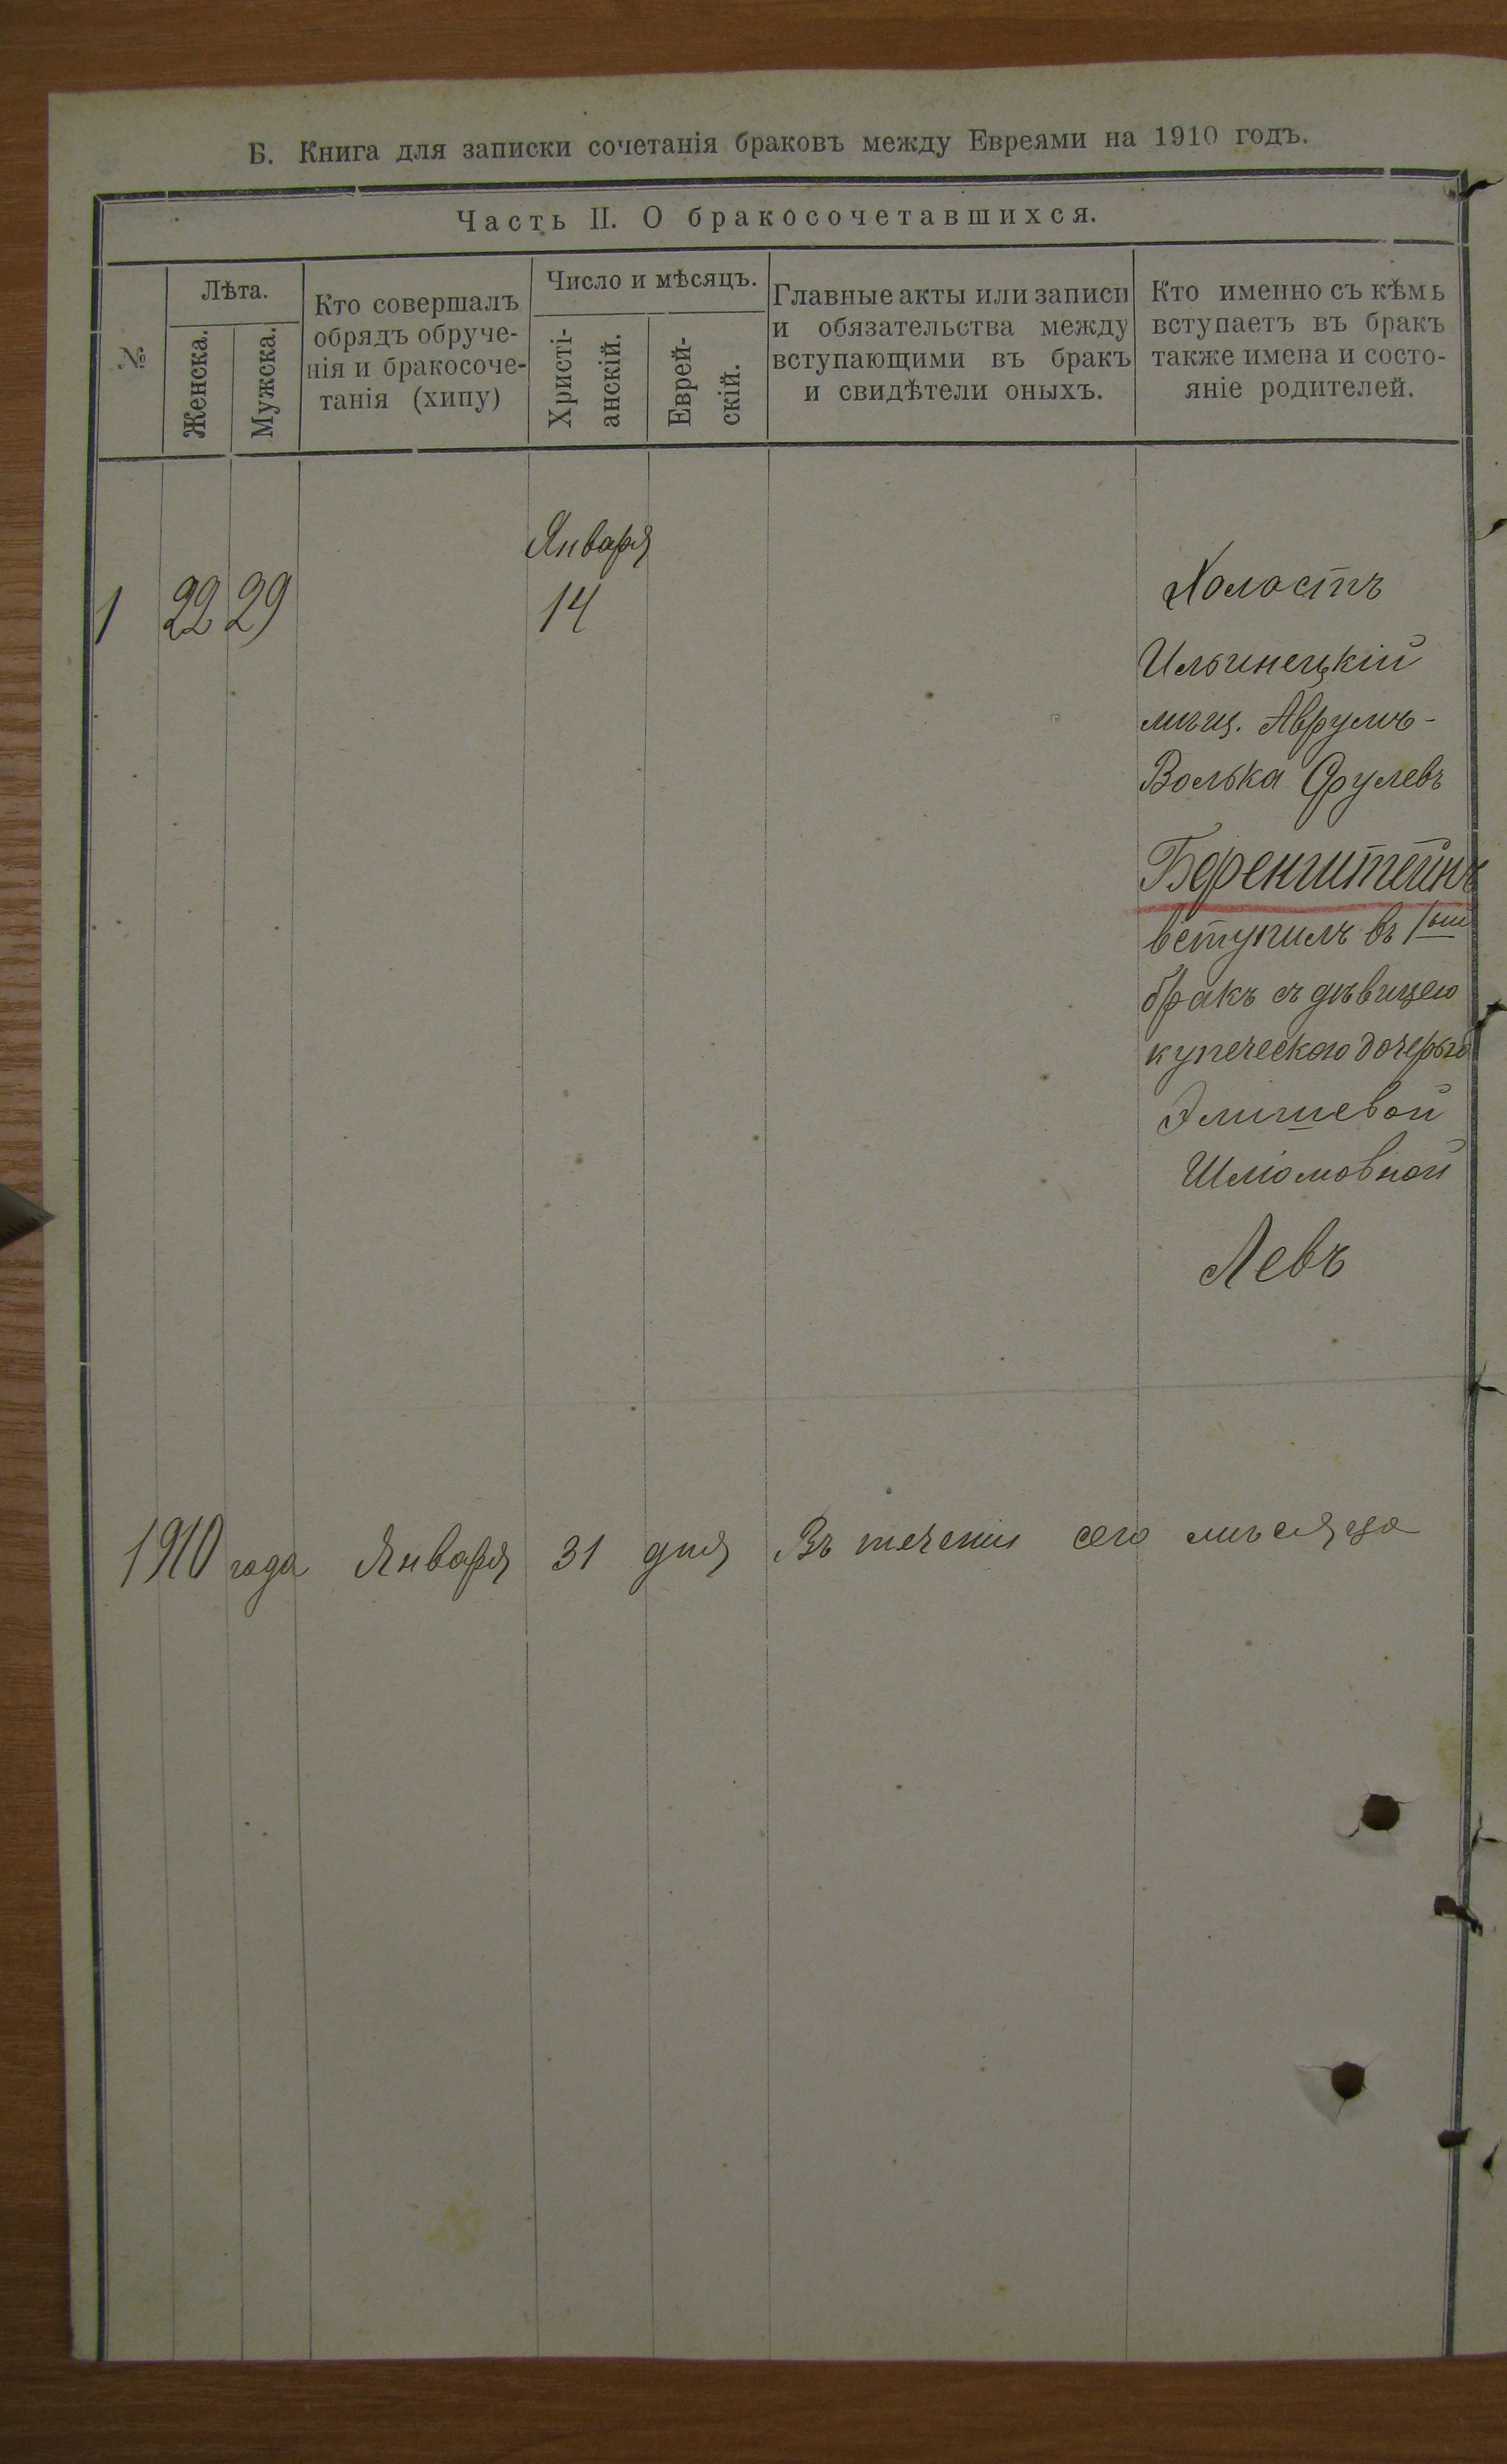 Б. Книга для записки сочетанія браковъ между Евреями на 1910 годъ.
Часть II. О бракосочетавшихся.
№
Лѣта.
Женска.
Мужска.
Кто совершалъ
обрядъ обруче-
нія и бракосоче-
танія (хипу)
Число и мѣсяцъ.
Христі-
анскій.
Еврей-
скій.
Главные акты или записи
и обязательства между
вступающими въ бракъ
и свидѣтели оныхъ.
Кто именно съ кѣмъ
вступаетъ въ бракъ
также имена и состо-
яніе родителей.
Января
1 22 29 14
Холостъ
Ильинецкій
мѣщ. Аврумъ-
Волька Срулевъ
Беренштейнъ
вступилъ въ 1ый
бракъ съ дѣвицею
купеческою дочерью
Элишевой
Шліомовной
Левъ
1910 года Января 31 дня Въ теченіи сего мѣсяца